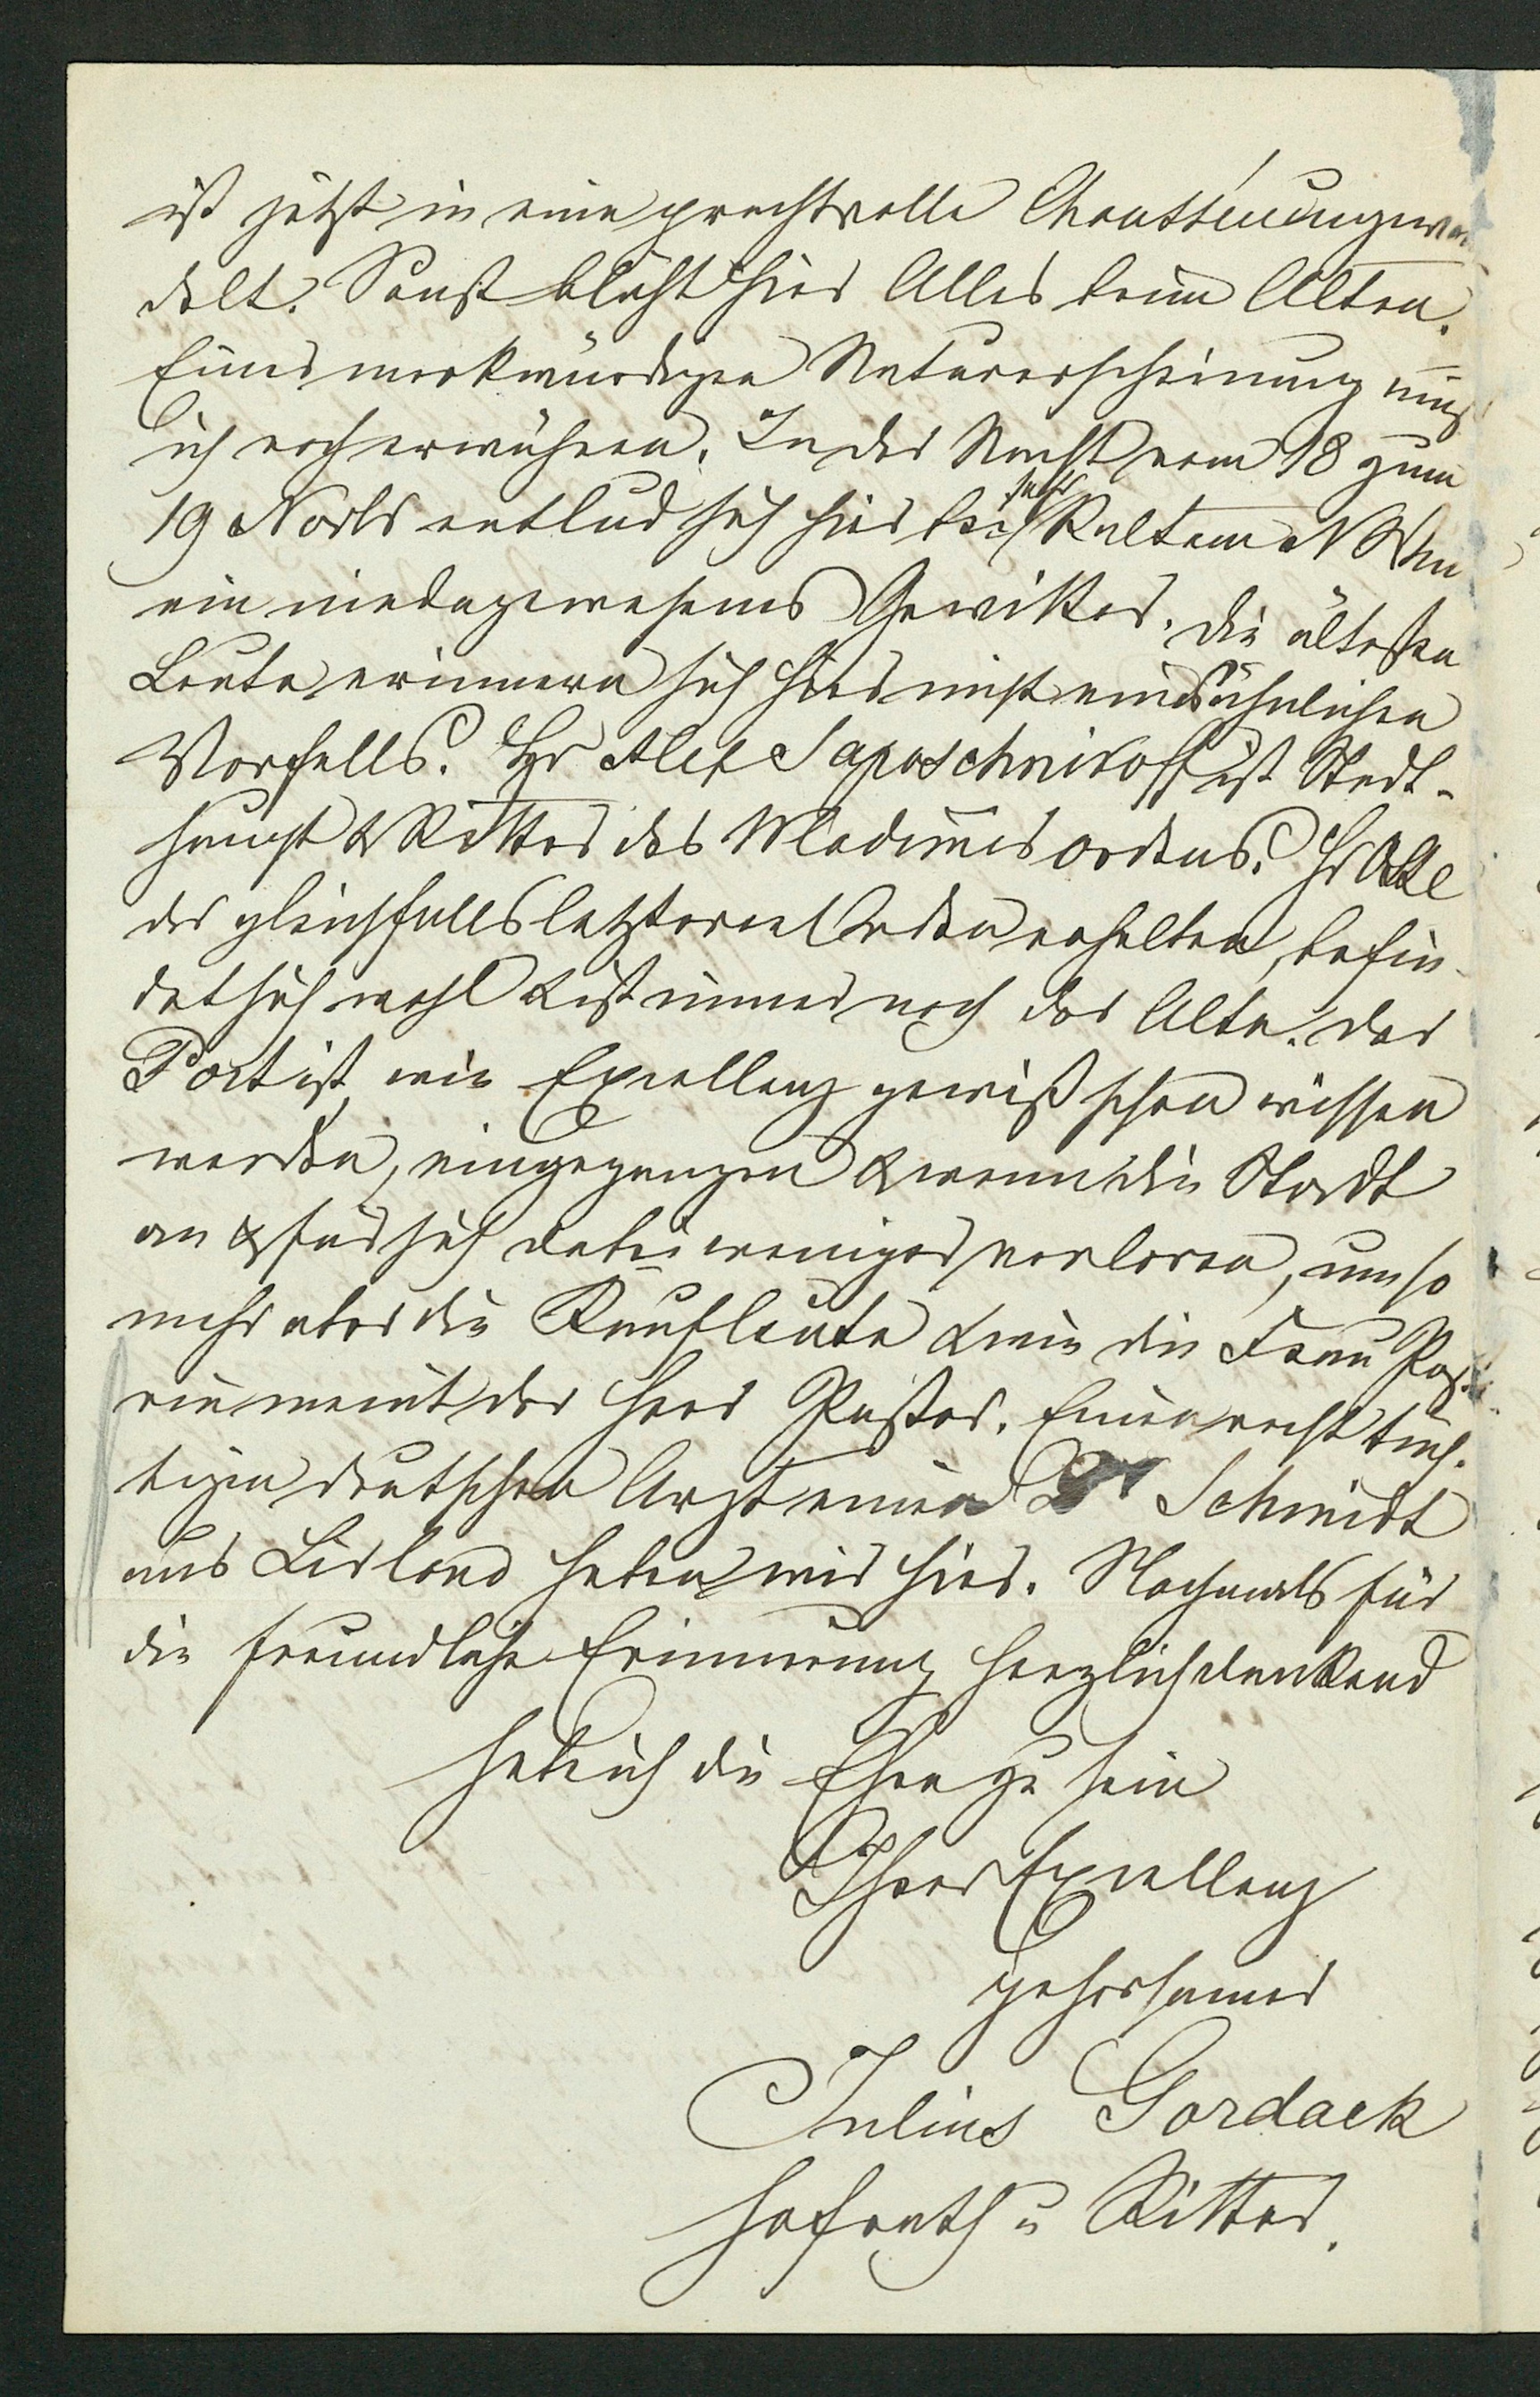 ist jetzt in eine prachtvolle Chaussée umgewan
delt. Sonst bleibt hier Alles beim Alten.
Einer merkwürdigen Naturerscheinung muß
ich noch erwähnen. In der Nacht vom 18 zum
19 Novbr entlud sich hier bei sehr kaltem N
ein niedagewesenes Gewitter. Die ältesten
Leute erinnern sich hier nicht eines ähnlichen
Vorfalls. Hr Alex Saposchnikoff ist Stadt-
haupt & Ritter des Wladimirordens. Hr
der gleichfalls letzteren Orden erhalten, befin-
det sich wohl & ist immer noch der Alte. Das
Port ist, wie Excellenz gewiß schon wissen
werden, eingegangen & wenn die Stadt
an & für sich dabei weniger verloren, um so
mehr aber die Kaufleute & wie die Frau Pasto
rin meint der Herr Pastor. Einen recht tüch-
tigen deutschen Arzt einen Dr Schmidt
aus Livland haben wir hier. Nochmals für
die freundliche Erinnerung herzlich dankend
habe ich die Ehre zu sein
Ihrer Excellenz
gehorsamer
Julius Gordack
Hofrath u Ritter.